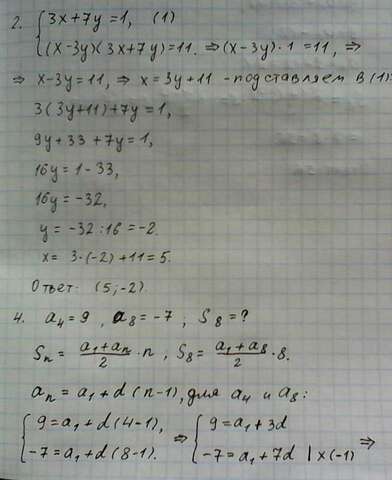 2. { 3x+7y=1, (1)
(x-3y)(3x+7y)=11. ⇒(x-3y)·1=11, ⇒
⇒ x-3y=11, ⇒ x=3y+11 - подставляем в (1):
3(3y+11)+7y=1,
9y+33+7y=1,
16y=1-33,
16y=-32,
y=-32:16=-2.
x= 3·(-2)+11=5.
Ответ: (5;-2).
4. a₄=9, a₈=-7; S₈=?
Sₙ = (a₁+aₙ)/2 ·n, S₈= (a₁+a₈)/2 ·8.
aₙ=a₁+d(n-1), для a₄ и a₈:
{ 9=a₁+d(4-1), ⇒ { 9=a₁+3d ⇒
-7=a₁+d(8-1). -7=a₁+7d |x(-1)